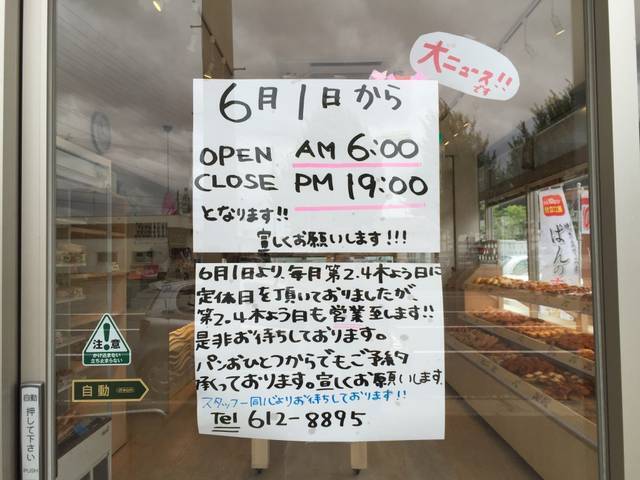 大ニュース!!
です
6月1日から
OPEN AM 6:00
CLOSE PM 19:00
となります!!
宜しくお願いします!!!
6月1日より、毎月第2.4木よう日に
定休日を頂いておりましたが、
第2.4木よう日も営業至します!!
是非お待ちしております。
パンおひとつからでもご予約
承っております。宜しくお願いします.
スタッフ一同心よりお待ちしております!!
Tel 612-8895
注意
かけ込まない
立ち止まらない
自動
自動
押して下さい
PUSH
ぱんの